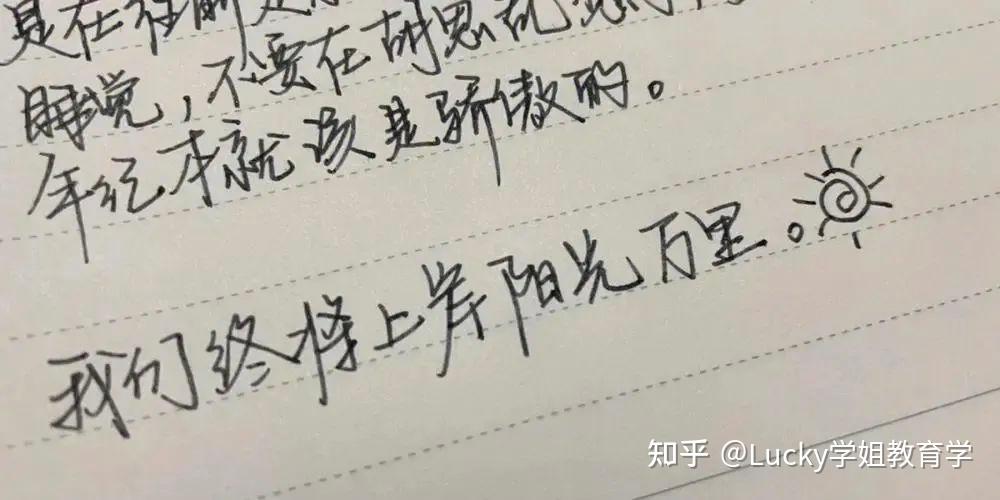 是在往前走
睡觉，不要在胡思乱想
年纪本就该是骄傲的。
我们终将上岸阳光万里。
知乎 @Lucky学姐教育学